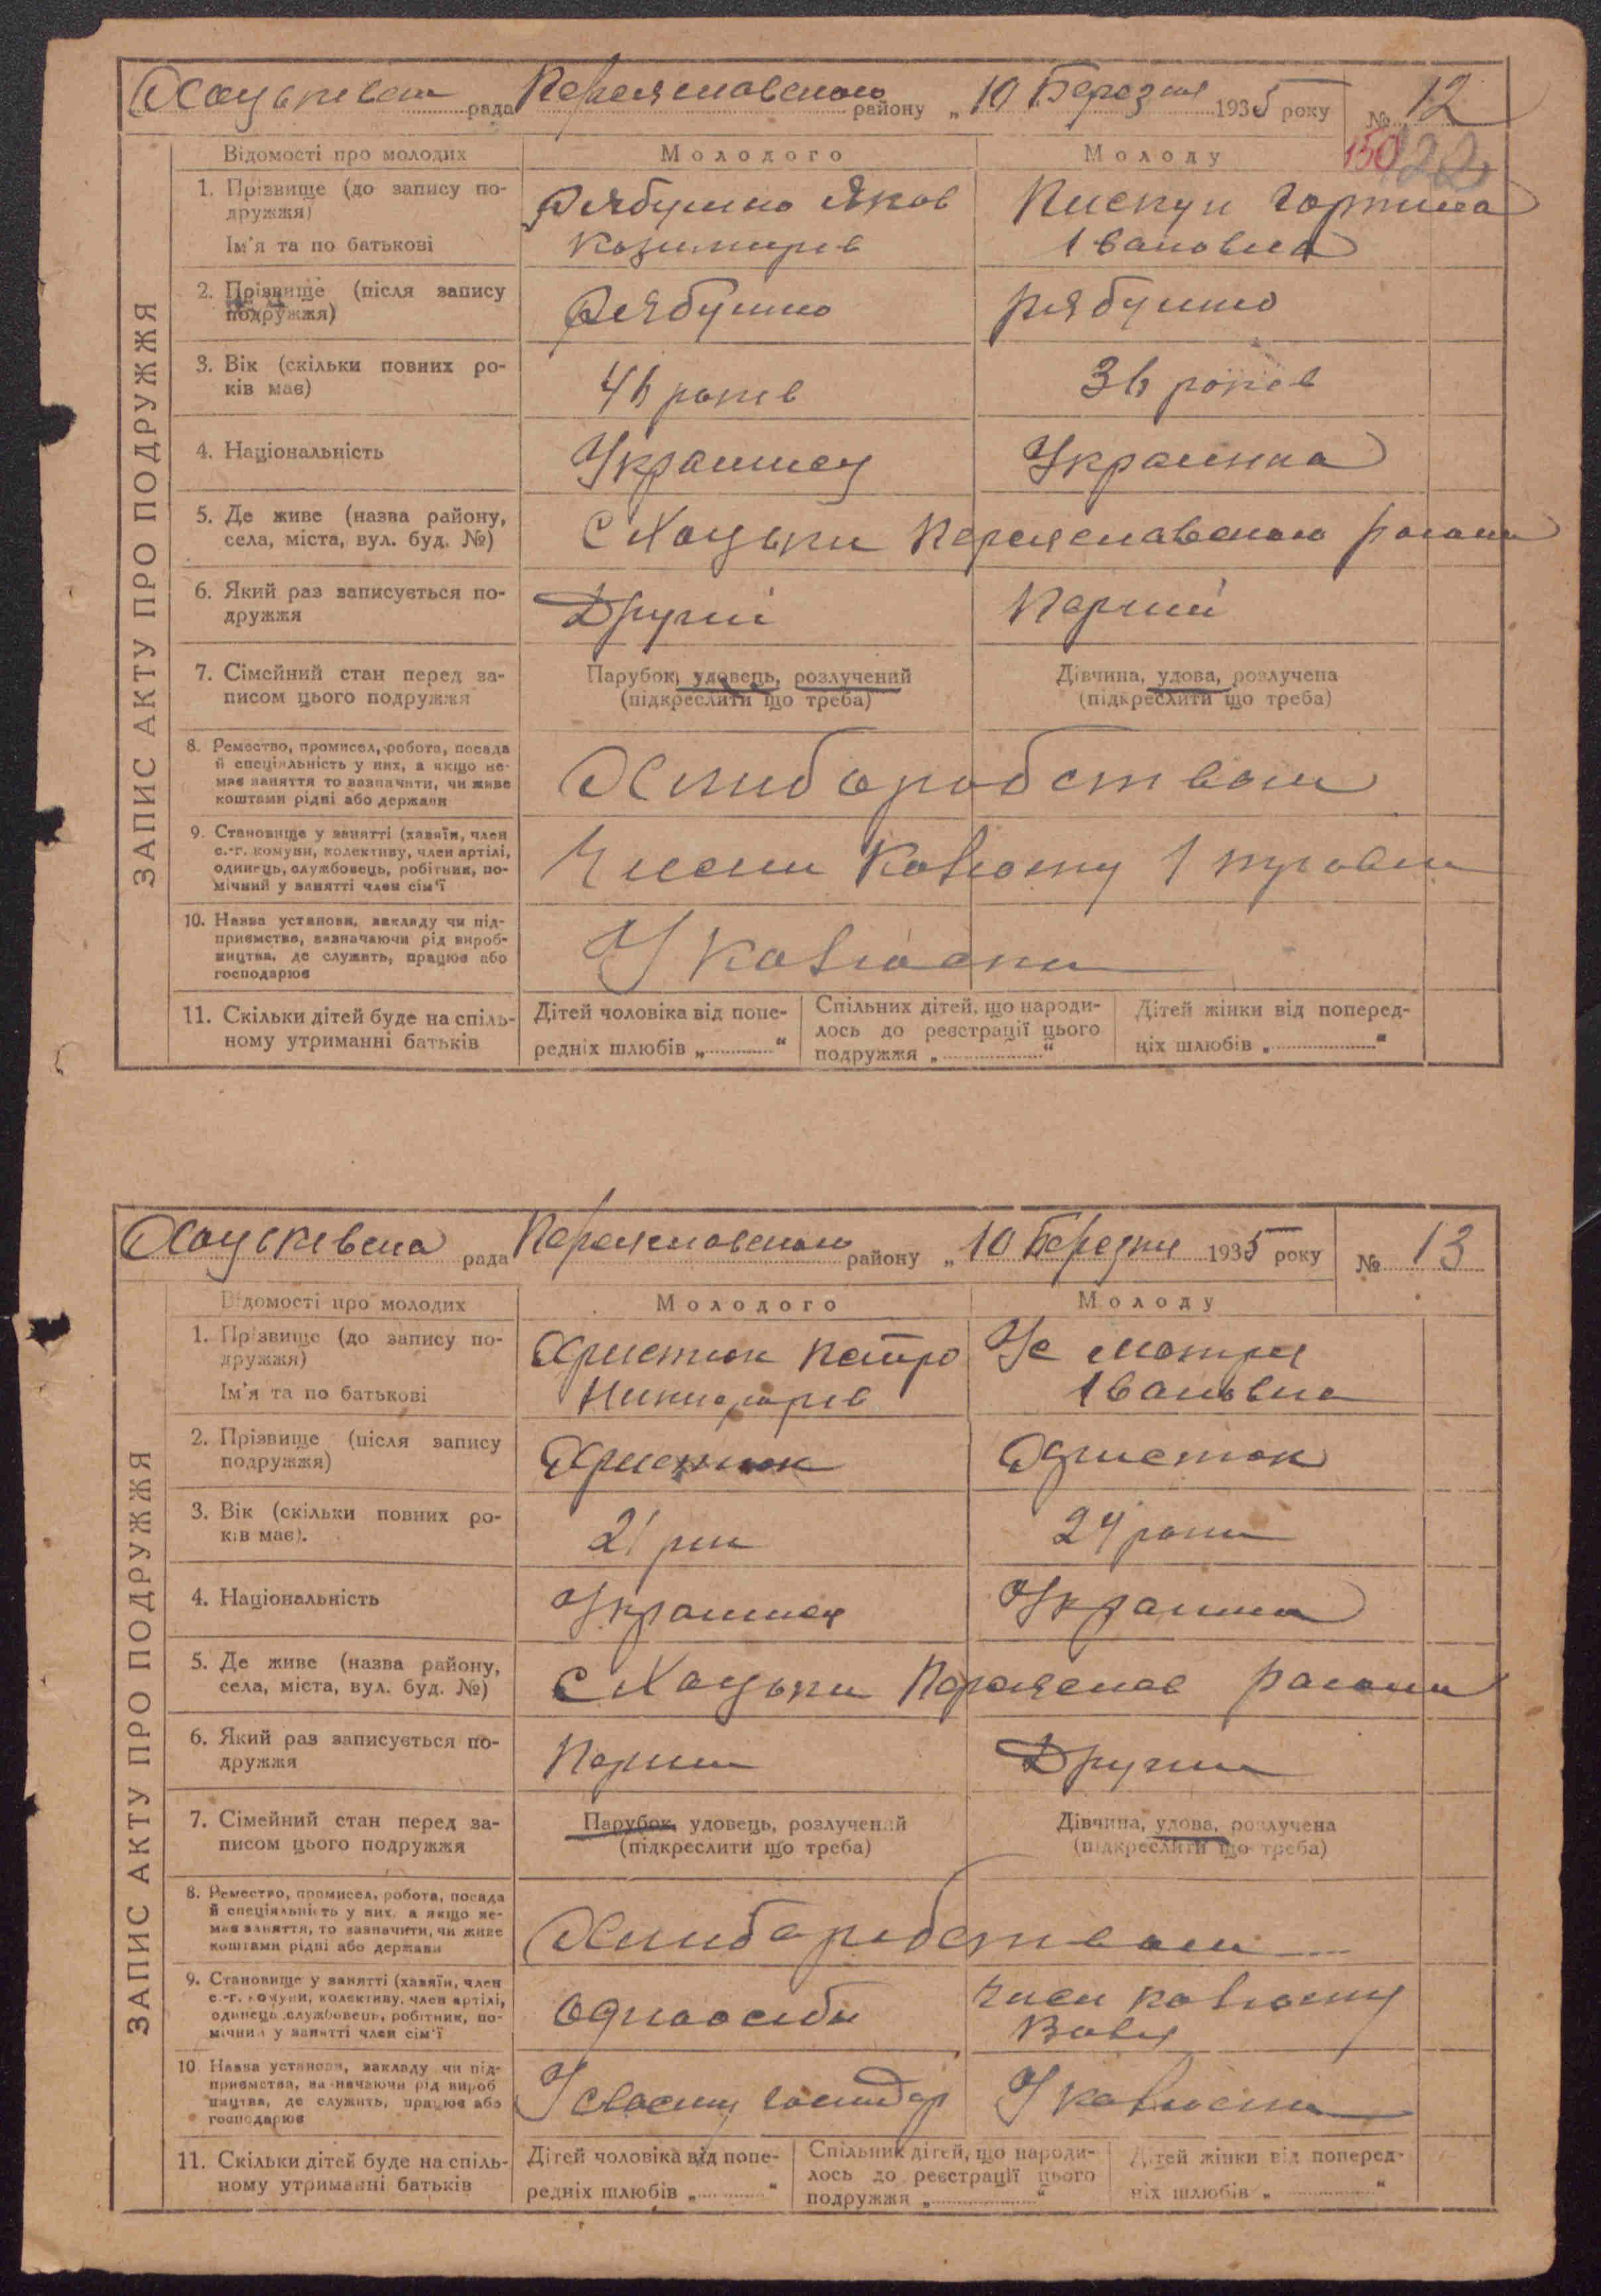 Хоцьківська рада Переяславського району „10 Березня 1935 року № 12
150 122
ЗАПИС АКТУ ПРО ПОДРУЖЖЯ
Відомості про молодих Молодого Молоду
1. Прізвище (до запису по-
дружжя) Рябушко Яков Пискун Горпина
Ім'я та по батькові Козимиров Івановна
2. Прізвище (після запису
подружжя) Рябушко Рябушко
3. Вік (скільки повних ро-
ків має) 46 років 36 років
4. Національність Украинец Украинка
5. Де живе (назва району,
села, міста, вул. буд. №) С Хоцьки Переяславського району
6. Який раз записується по-
дружжя Другий Перший
7. Сімейний стан перед за- Парубок, удовець, розлучений Дівчина, удова, розлучена
писом цього подружжя (підкреслити що треба) (підкреслити що треба)
8. Ремество, промисел, робота, посада
й спеціяльність у них, а якщо не-
має заняття то зазначити, чи живе
коштами рідні або держави Хлиборобством
9. Становище у занятті (хазяїн, член
с.-г. комуни, колективу, член артілі,
одинець, службовець, робітник, по-
мічний у занятті член сім'ї Члени Колгоспу
10. Назва установи, закладу чи під-
приємства, зазначаючи рід вироб-
ництва, де служить, працює або
господарює У Колгоспи
11. Скільки дітей буде на спіль-
ному утриманні батьків
Дітей чоловіка від попе-
редніх шлюбів „ “
Спільних дітей, що народи-
лось до реєстрації цього
подружжя „ “
Дітей жінки від поперед-
ніх шлюбів „ “
Хоцьківська рада Переяславського району „10 Березня 1935 року № 13
ЗАПИС АКТУ ПРО ПОДРУЖЖЯ
Відомості про молодих Молодого Молоду
1. Прізвище (до запису по-
дружжя) Христюк Петро Мотря
Ім'я та по батькові Никифоров Івановна
2. Прізвище (після запису
подружжя) Христюк Христюк
3. Вік (скільки повних ро-
ків має). 21 рик 24 роки
4. Національність Украинец Украинка
5. Де живе (назва району,
села, міста, вул. буд. №) С Хоцьки Переяслав району
6. Який раз записується по-
дружжя Перши Други
7. Сімейний стан перед за- Парубок, удовець, розлучений Дівчина, удова, розлучена
писом цього подружжя (підкреслити що треба) (підкреслити що треба)
8. Ремество, промисел, робота, посада
й спеціяльність у них, а якщо не-
має заняття, то зазначити, чи живе
коштами рідні або держави Хлиборобством
9. Становище у занятті (хазяїн, член
с.-г. комуни, колективу, член артілі,
одинець, службовець, робітник, по-
мічний у занятті член сім'ї Одноосибн Член колгоспу
10. Назва установи, закладу чи під-
приємства, зазначаючи рід вироб
ництва, де служить, працює або
господарює У своему господар У колгоспи
11. Скільки дітей буде на спіль-
ному утриманні батьків
Дітей чоловіка від попе-
редніх шлюбів „ “
Спільних дітей, що народи-
лось до реєстрації цього
подружжя „ “
Дітей жінки від поперед-
ніх шлюбів „ “